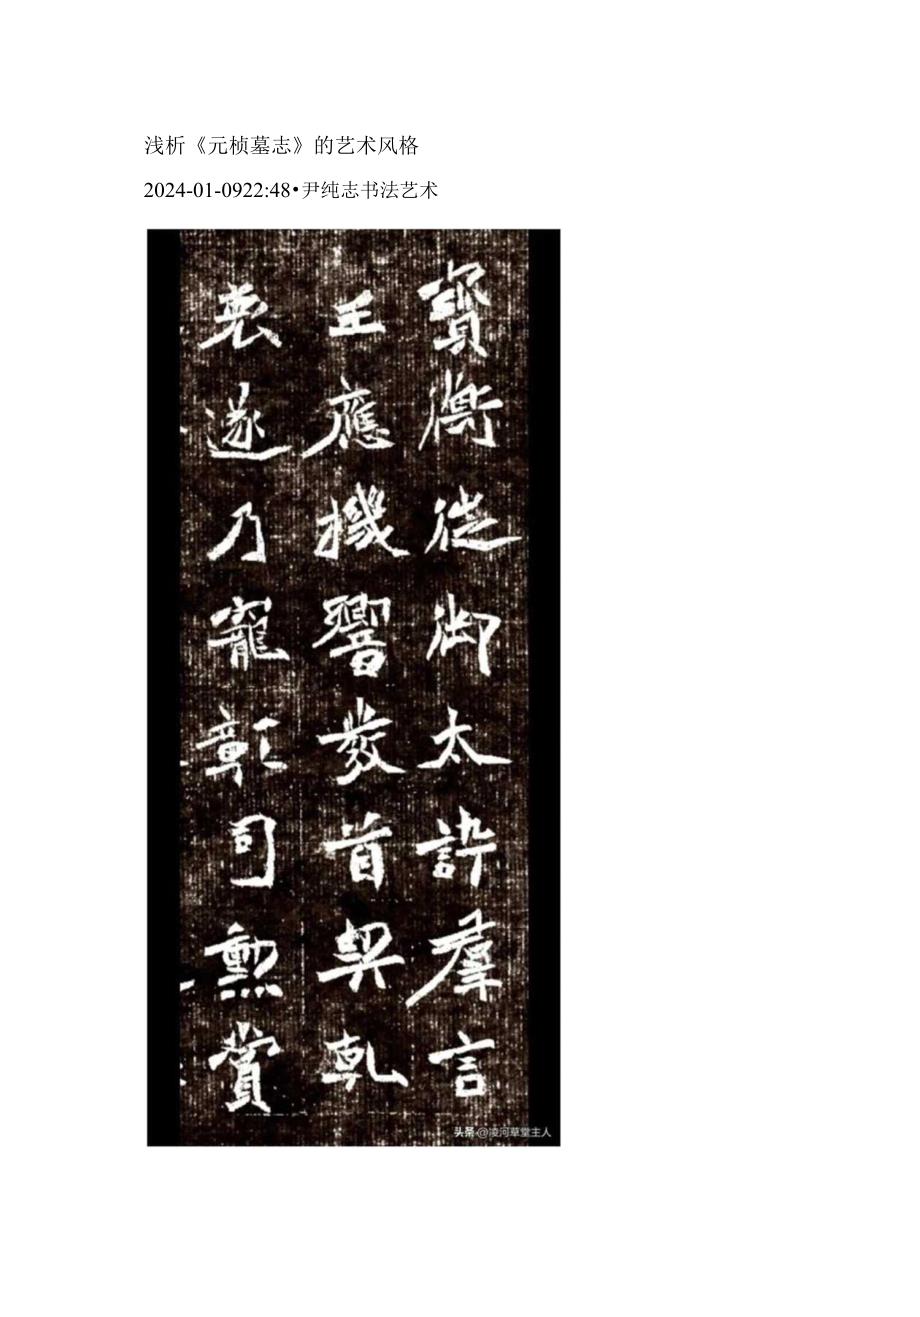 浅析《元桢墓志》的艺术风格
2024-01-0922:48•尹纯志书法艺术
寶衡徙御太訊羣言
王應機響發首契乾
衷遂乃寵彰司勲賞
头条 @凌河草堂主人